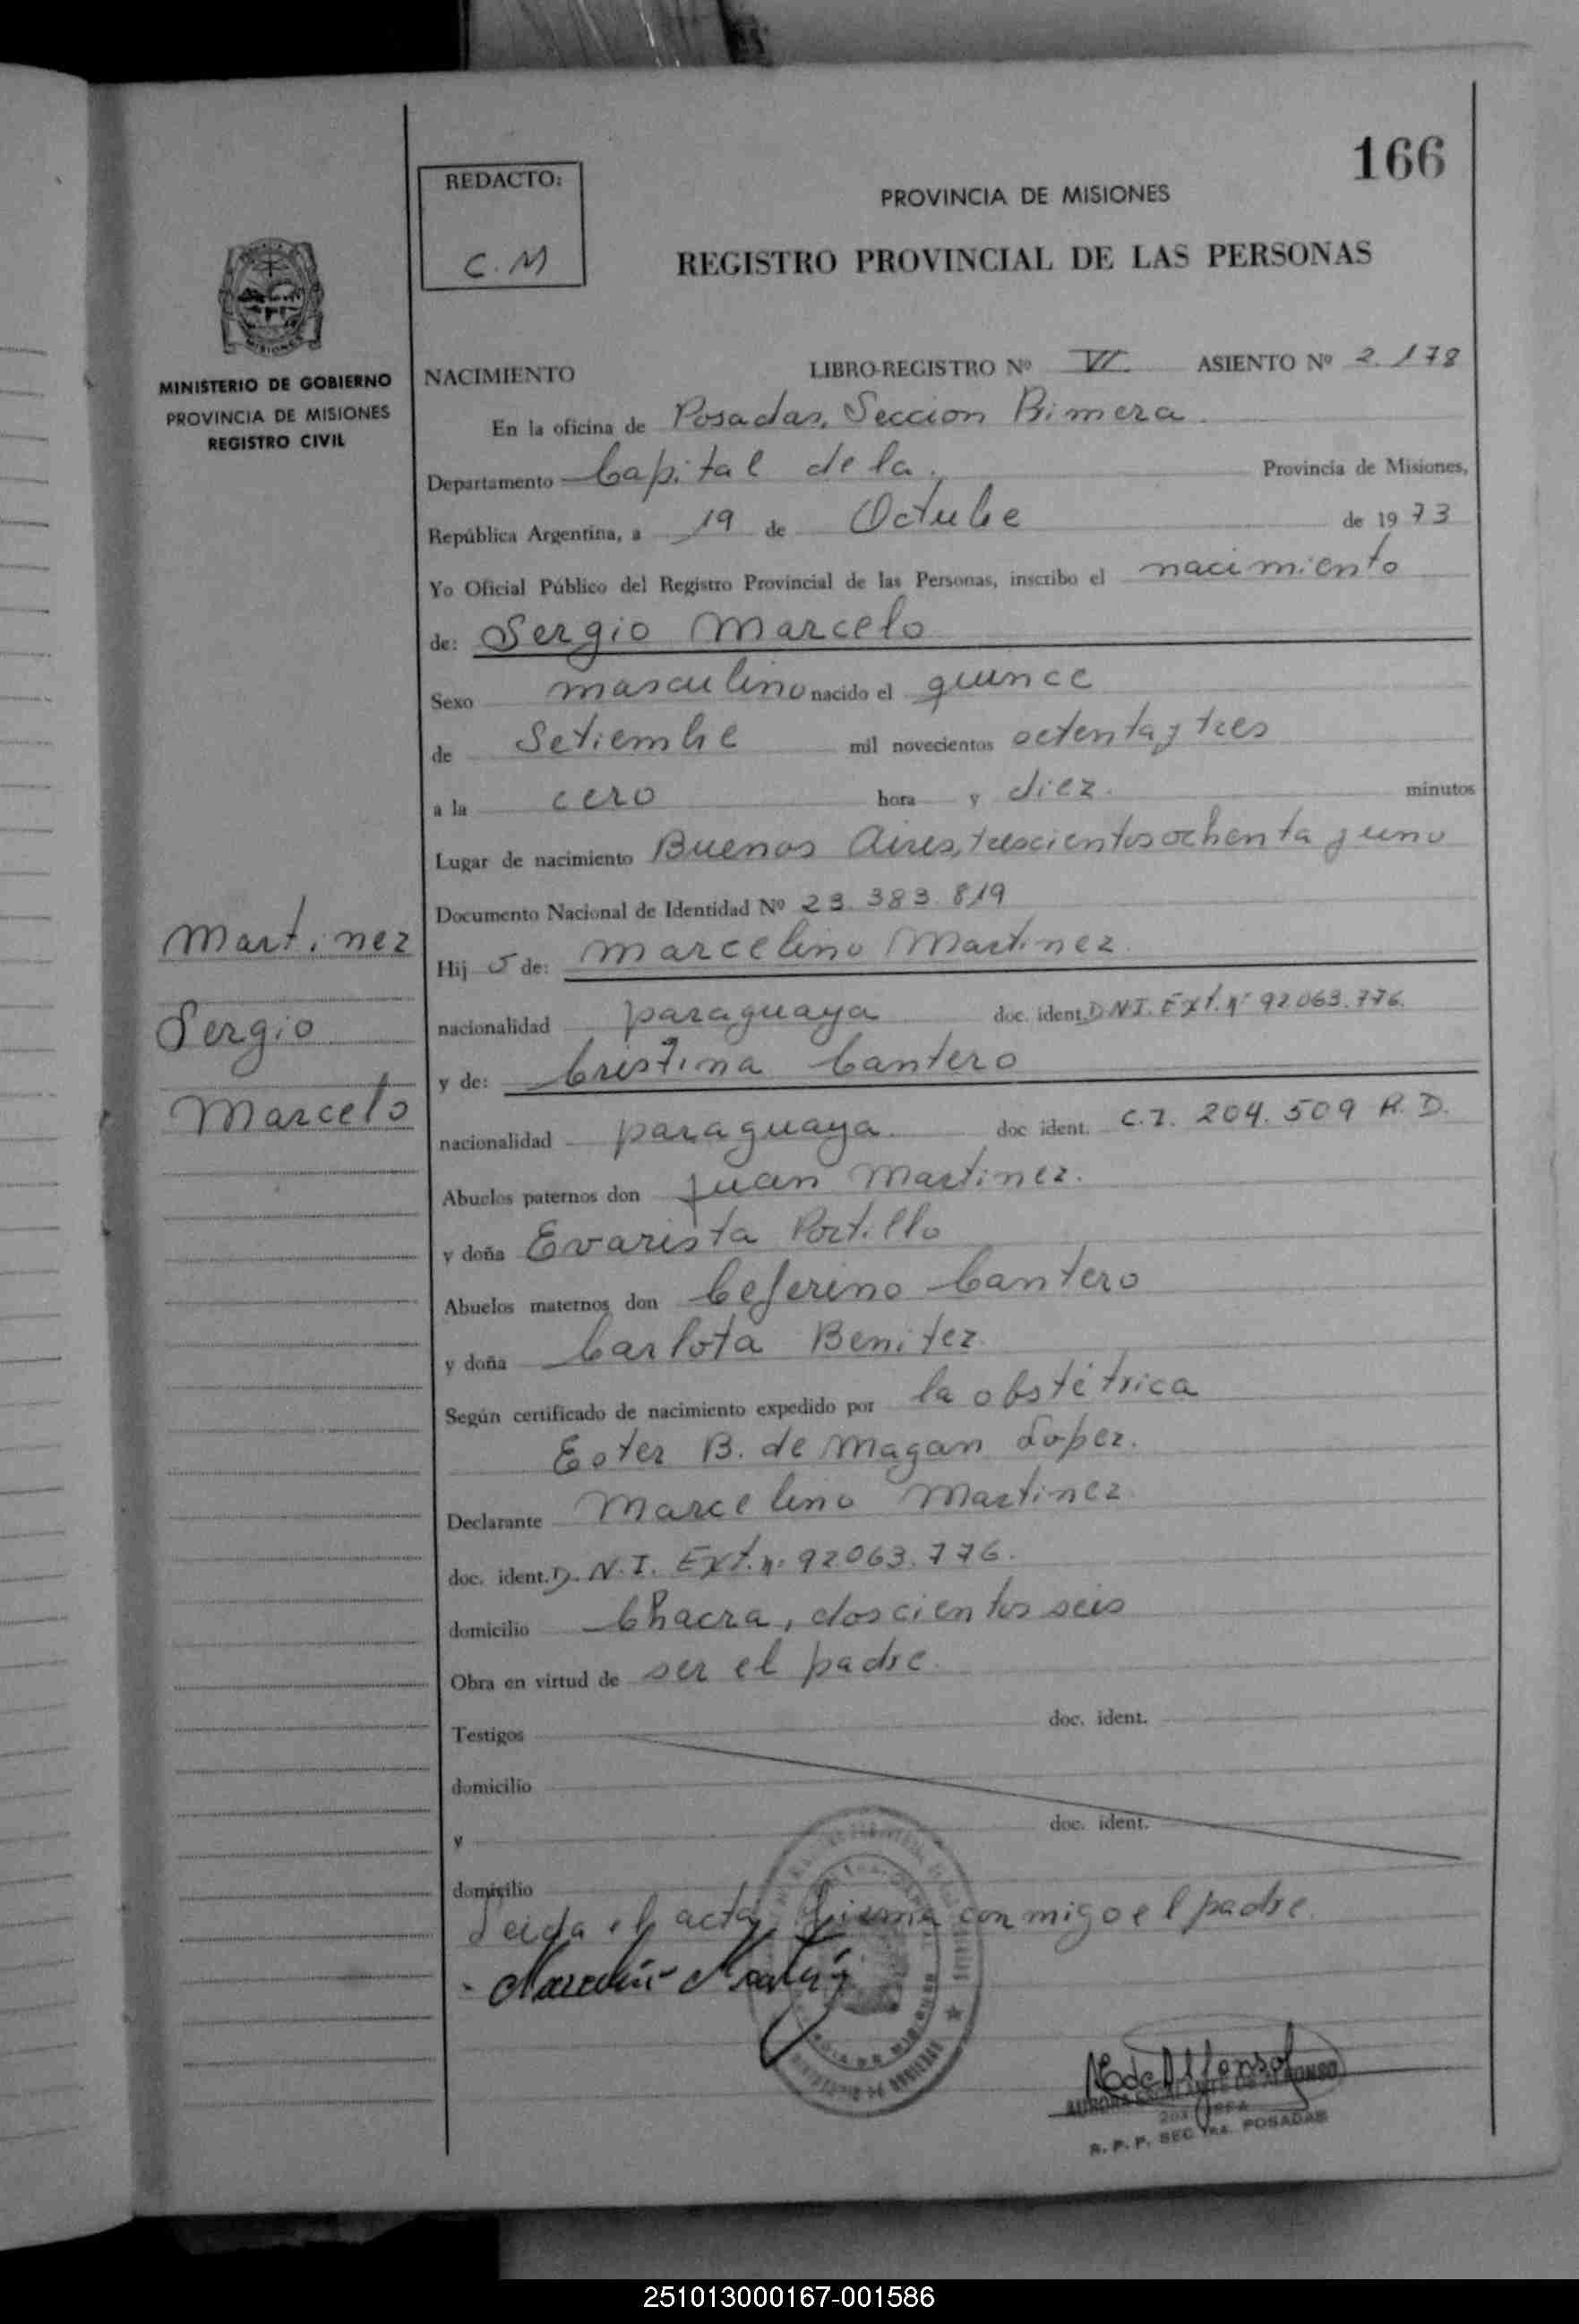 166
REDACTO:
C. M
PROVINCIA DE MISIONES
REGISTRO PROVINCIAL DE LAS PERSONAS
MISIONES
MINISTERIO DE GOBIERNO
PROVINCIA DE MISIONES
REGISTRO CIVIL
NACIMIENTO LIBRO-REGISTRO Nº VI ASIENTO Nº 2.178
En la oficina de Posadas, Seccion Primera.
Departamento Capital de la. Provincia de Misiones,
República Argentina, a 19 de Octubre de 1973
Yo Oficial Público del Registro Provincial de las Personas, inscribo el nacimiento
de: Sergio Marcelo
Sexo masculino nacido el quince
de Setiembre mil novecientos setenta y tres
a la cero hora y diez. minutos
Lugar de nacimiento Buenos Aires, trescientos ochenta y uno
Documento Nacional de Identidad Nº 23.383.819
Martinez
Hij o de: Marcelino Martinez.
Sergio
nacionalidad paraguaya doc. ident. D.N.I. Ext. nº 92.063.776.
y de: Cristina Cantero
Marcelo
nacionalidad paraguaya. doc ident. C.I. 204.509 R.D.
Abuelos paternos don Juan Martinez.
y doña Evarista Portillo
Abuelos maternos don Ceferino Cantero
y doña Carlota Benitez.
Según certificado de nacimiento expedido por la obstétrica
Ester B. de Magan Lopez.
Declarante Marcelino Martinez.
doc. ident. D.N.I. Ext. nº 92.063.776.
domicilio Chacra, doscientos seis
Obra en virtud de ser el padre.
Testigos doc. ident.
domicilio
y doc. ident.
domicilio
Leida el acta, firma conmigo el padre.
Marcelino Martinez
AURORA ESCALANTE DE ALFONSO
R. P. P. SEC 1RA. POSADAS
251013000167-001586